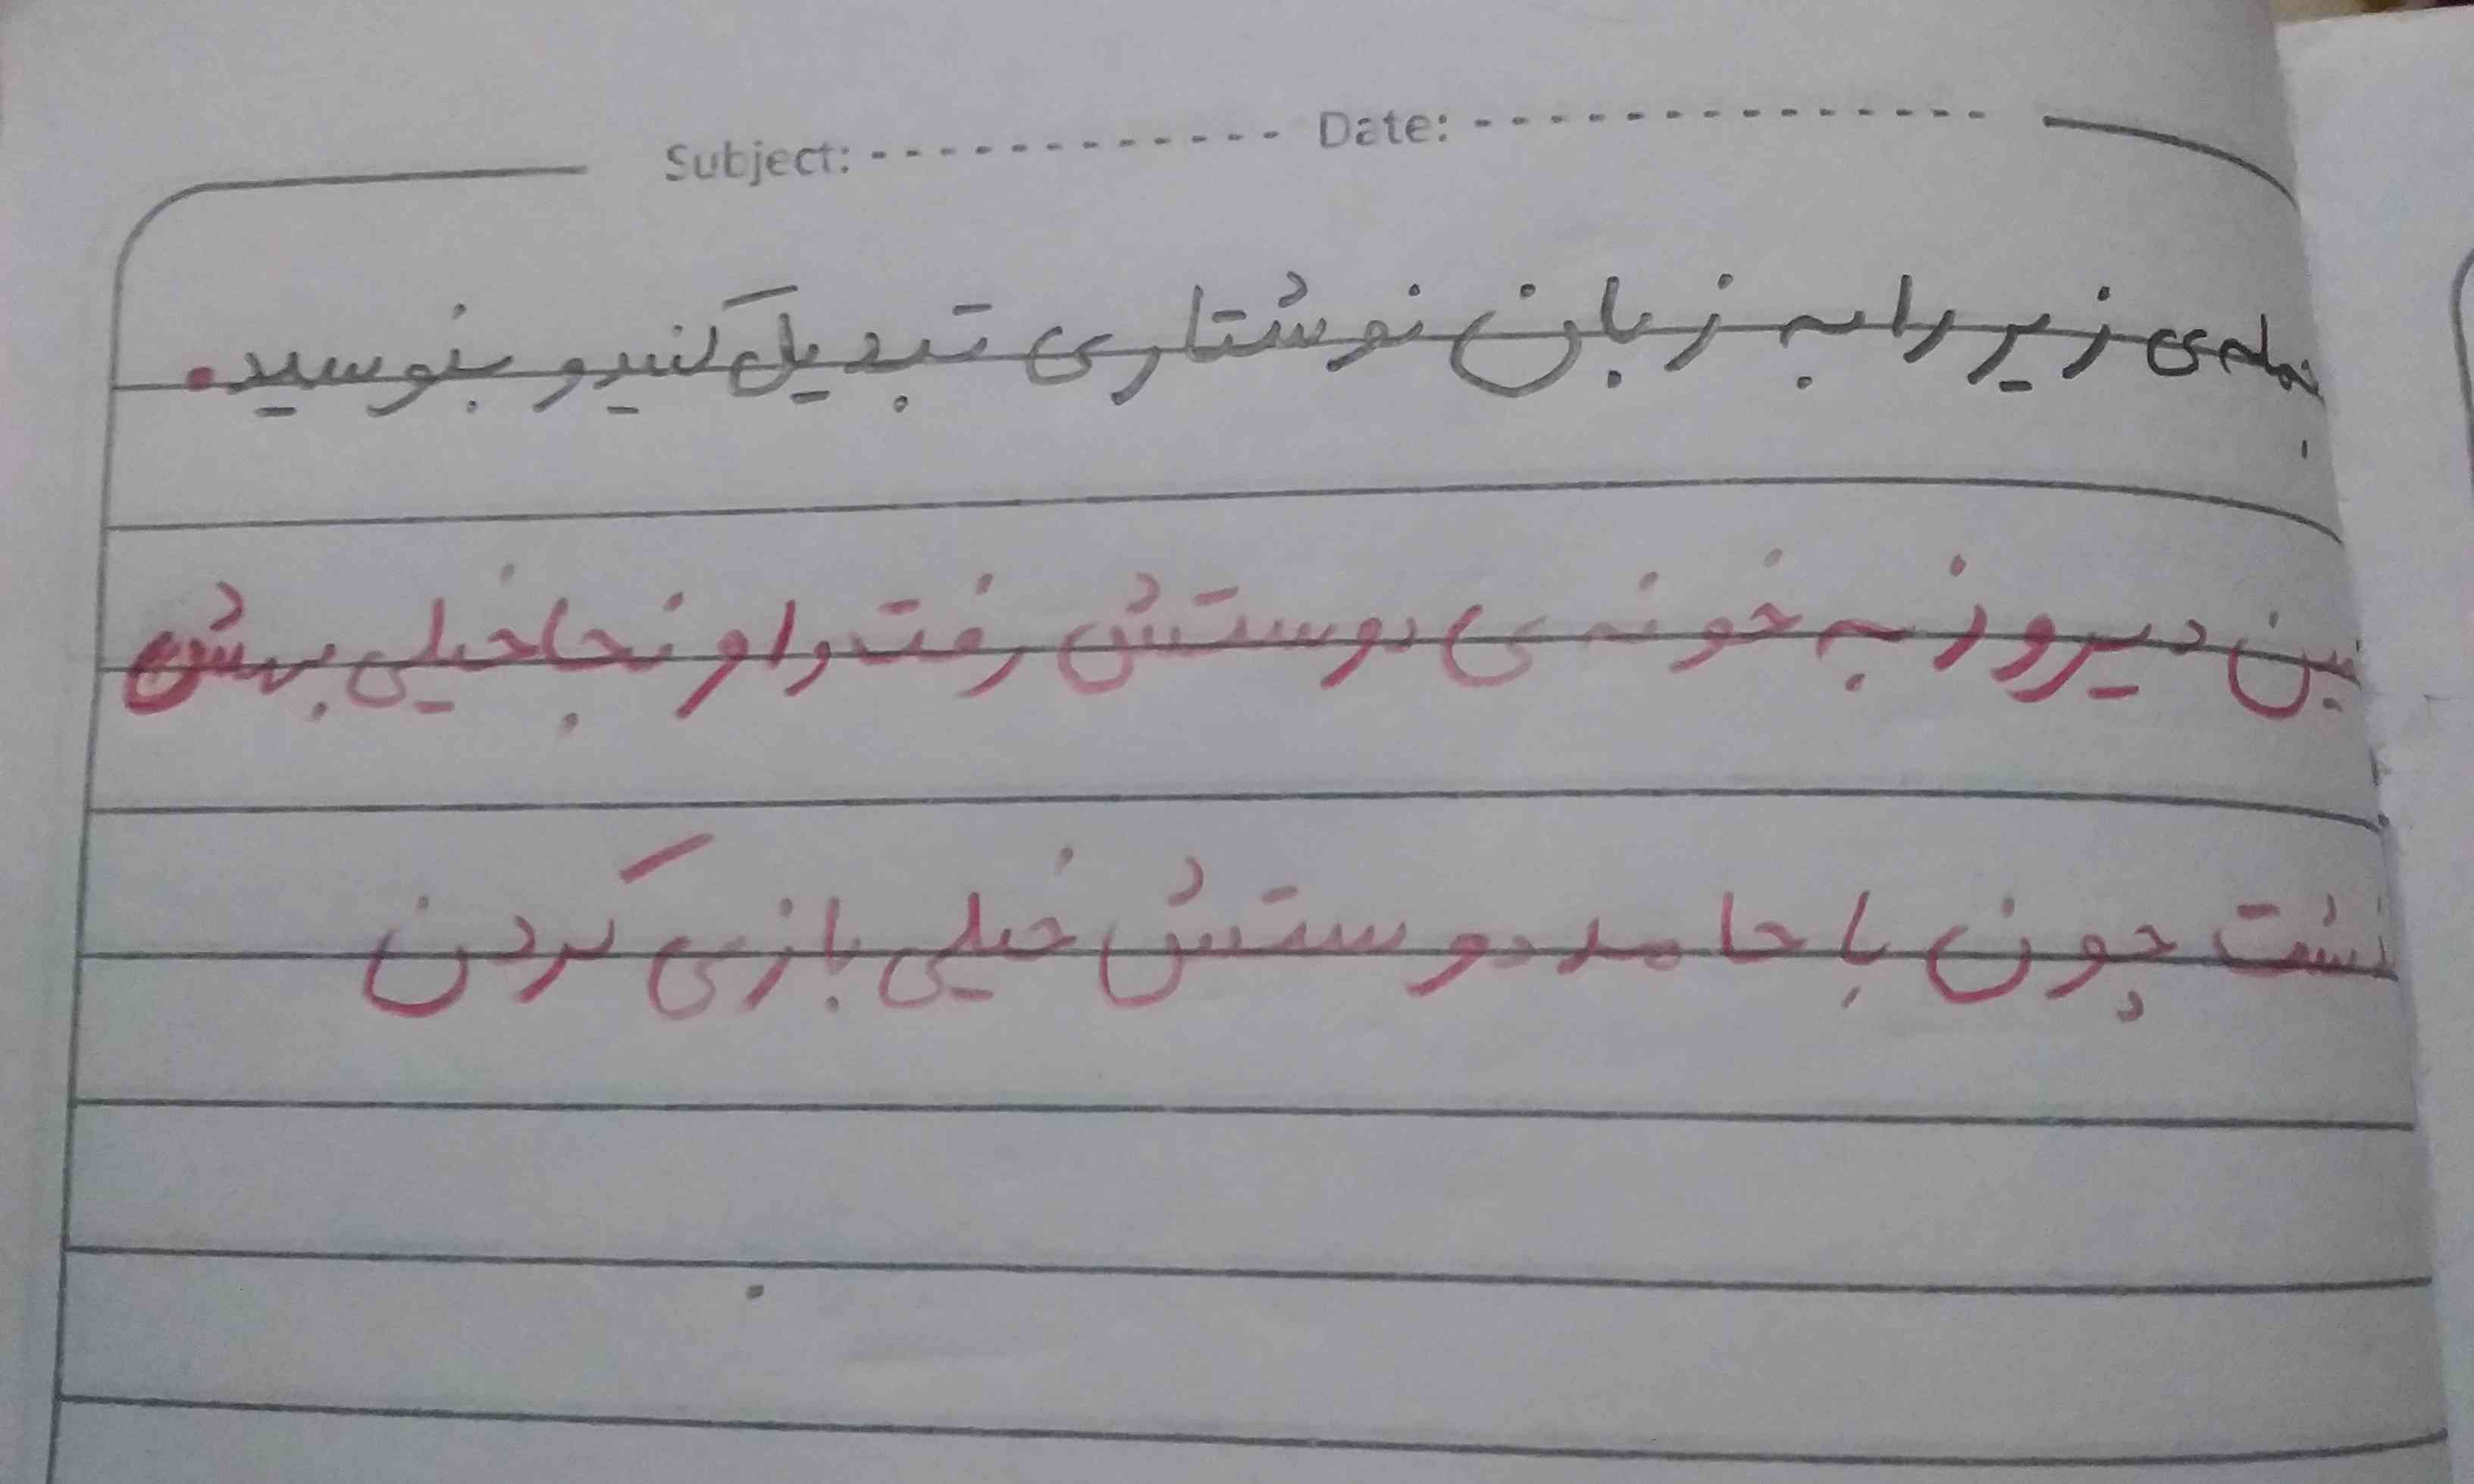 Subject: Date:
جمله‌ی زیر را به زبان نوشتاری تبدیل کنید و بنوسید.
دیروز به خونه ی دوستش رفت و اونجا خیلی بهش
چون با حامد دوستش خیلی بازی کردن